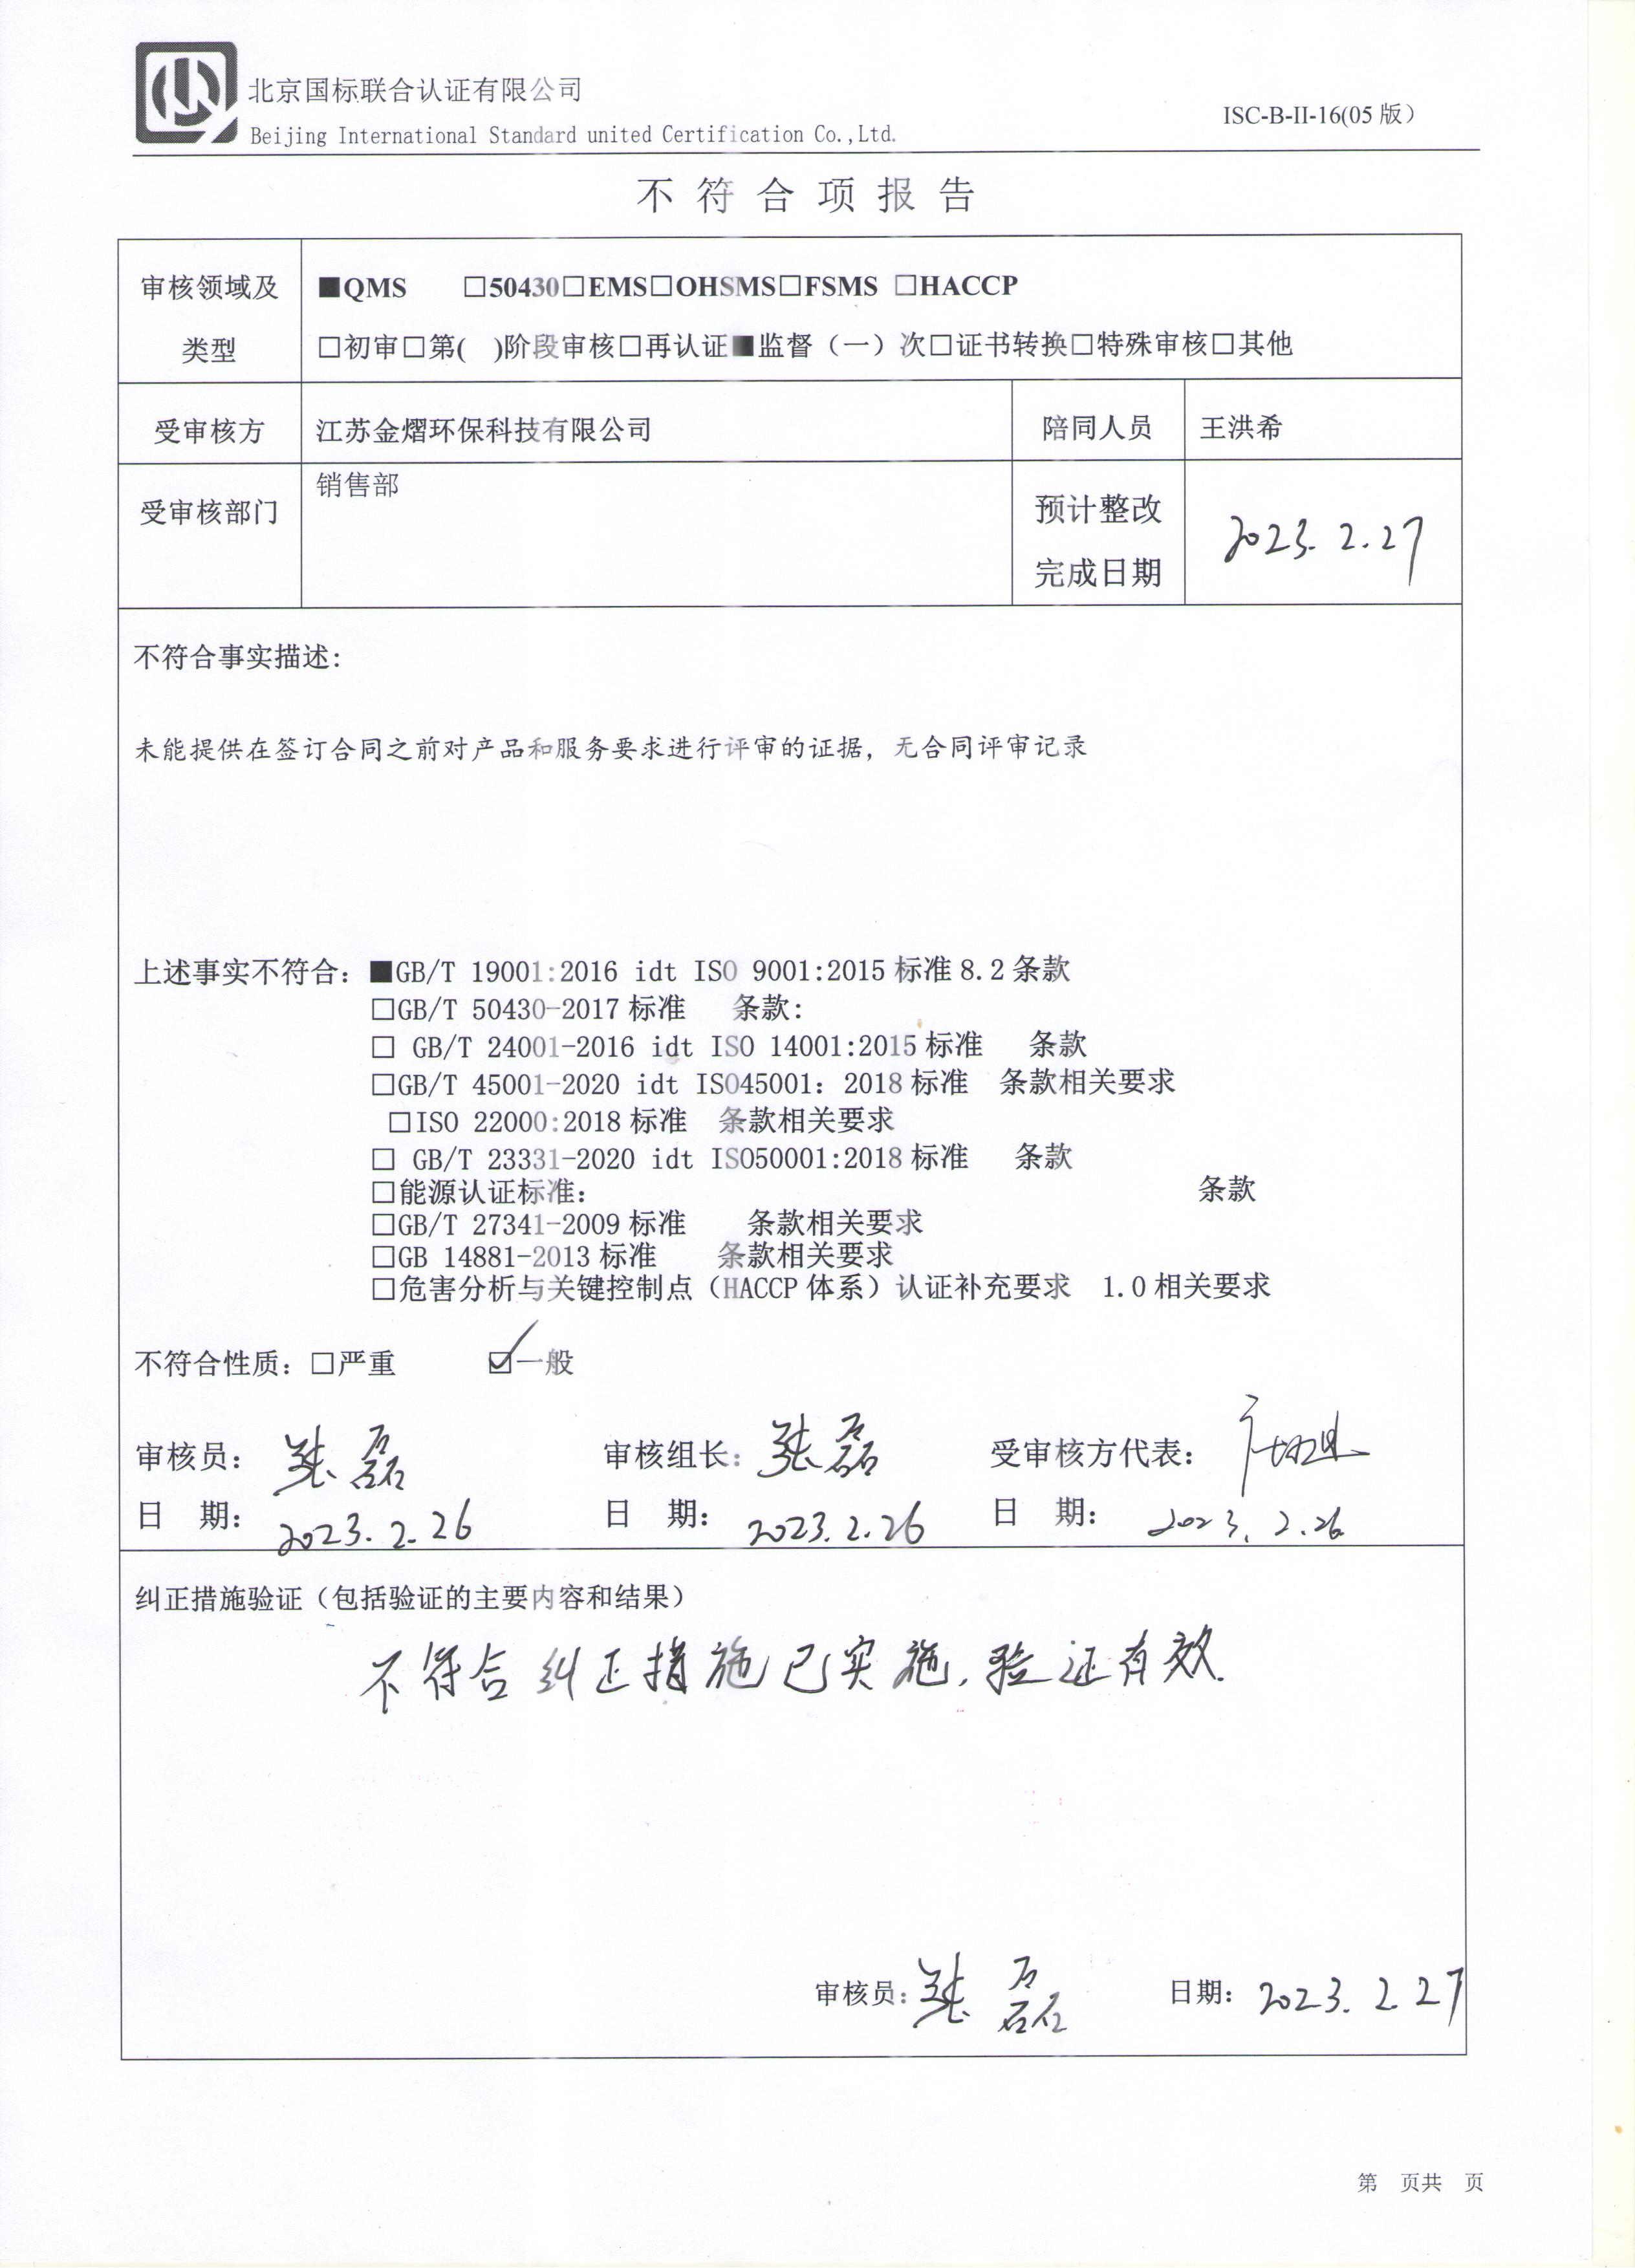 北京国标联合认证有限公司
Beijing International Standard united Certification Co.,Ltd.
ISC-B-II-16(05版）
不符合项报告
审核领域及类型
■QMS □50430□EMS□OHSMS□FSMS □HACCP
□初审□第( )阶段审核□再认证■监督（一）次□证书转换□特殊审核□其他
受审核方 江苏金熠环保科技有限公司 陪同人员 王洪希
受审核部门 销售部 预计整改完成日期 2023.2.27
不符合事实描述：
未能提供在签订合同之前对产品和服务要求进行评审的证据，无合同评审记录
上述事实不符合：■GB/T 19001:2016 idt ISO 9001:2015标准8.2条款
□GB/T 50430-2017标准 条款：
□ GB/T 24001-2016 idt ISO 14001:2015标准 条款
□GB/T 45001-2020 idt ISO45001：2018标准 条款相关要求
□ISO 22000:2018标准 条款相关要求
□ GB/T 23331-2020 idt ISO50001:2018标准 条款
□能源认证标准： 条款
□GB/T 27341-2009标准 条款相关要求
□GB 14881-2013标准 条款相关要求
□危害分析与关键控制点（HACCP体系）认证补充要求 1.0相关要求
不符合性质：□严重 ☑一般
审核员：张磊 审核组长：张磊 受审核方代表：
日 期：2023.2.26 日 期：2023.2.26 日 期：2023.2.26
纠正措施验证（包括验证的主要内容和结果）
不符合纠正措施已实施，验证有效.
审核员：张磊 日期：2023.2.27
第 页共 页